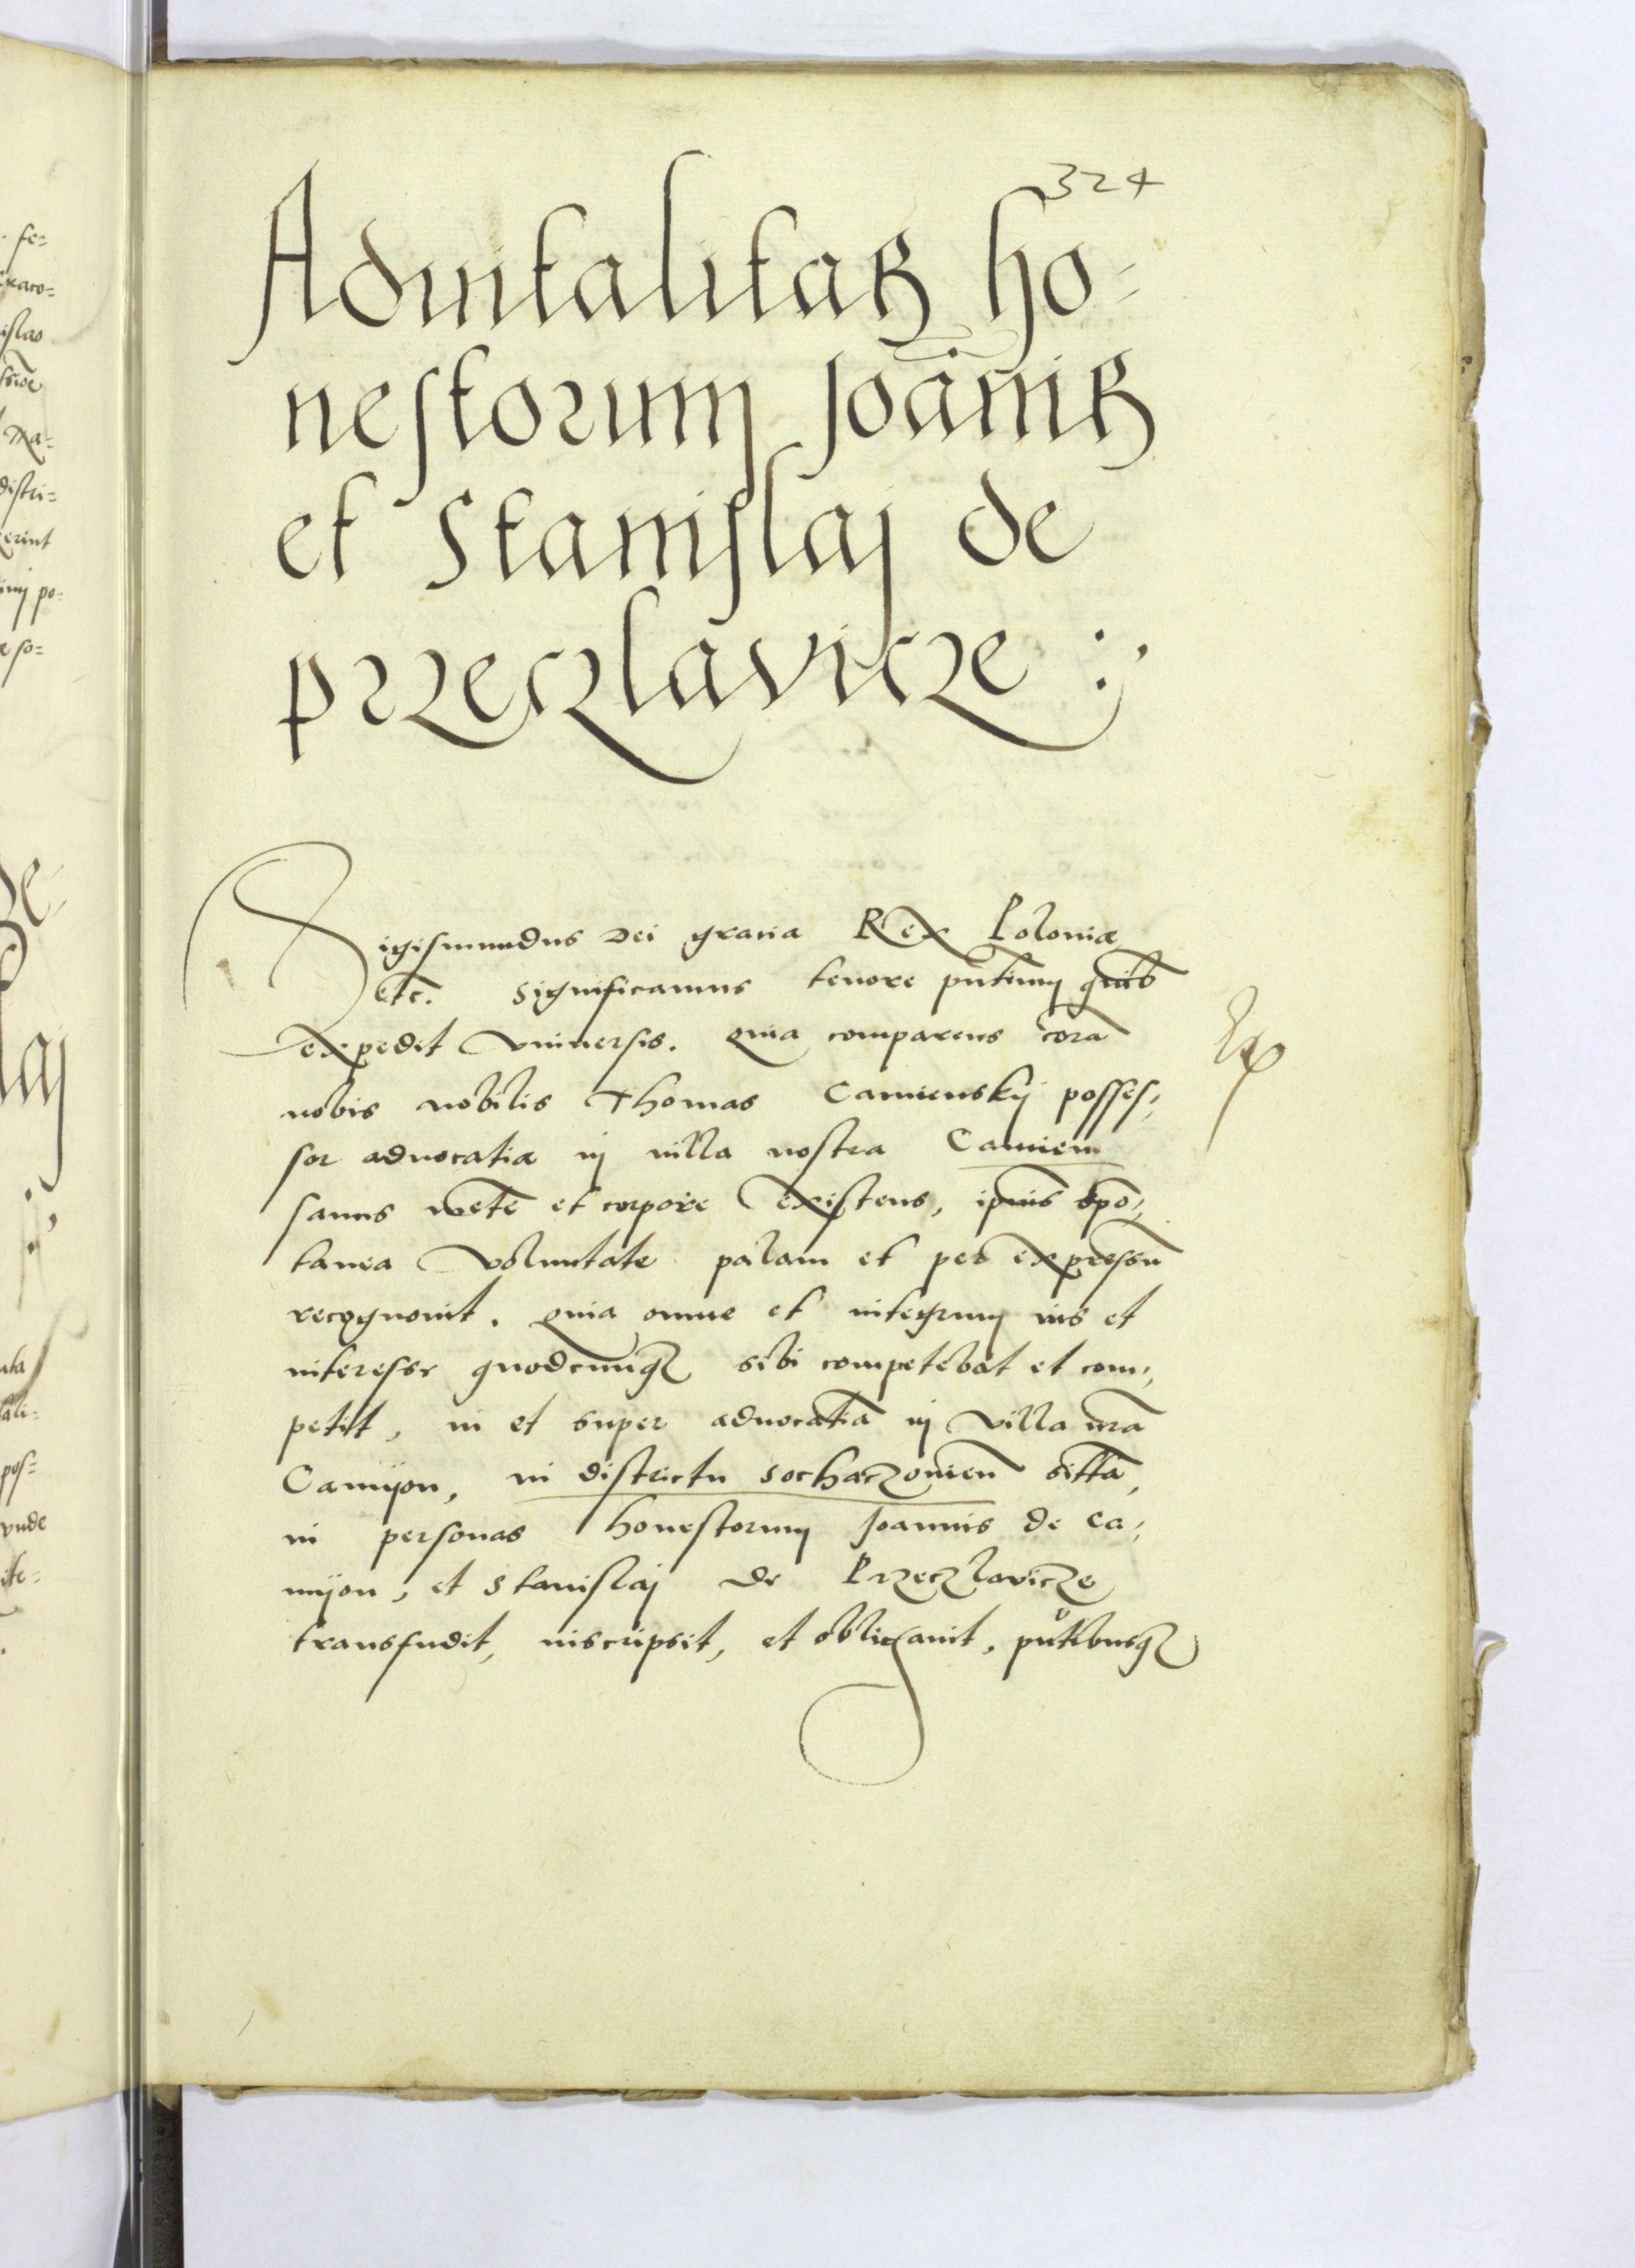 324
Aduitalitas ho-
nestorum Joānis
et Stanislaj de
przeczlavicze :,
Sigismundus Dei gratia Rex Poloniæ
etc. Significamus tenore pntium quib
expedit Vniuersis. Quia comparens corā
nobis nobilis Thomas Camienskij posses,,
sor aduocatiæ in villa nostra Camiem
sanus mēte et corpore existens, spō,,
tanea Voluntate palam et per expressū
recognouit. Quia omne et integrum ius et
interesse quodcunq3 sibi competebat et com,,
petit, in et super aduocatiā in Villa nrā
Camijon, in districtu Sochaczouien sittā,
in personas honestorum Joannis de Ca,,
mijon, et Stanislaj de Przeczlavicze
transfudit, inscripsit, et obligauit, pntibusq3
fe=
islao
distri=
erint
po=
so=
laj
pos=
vnde